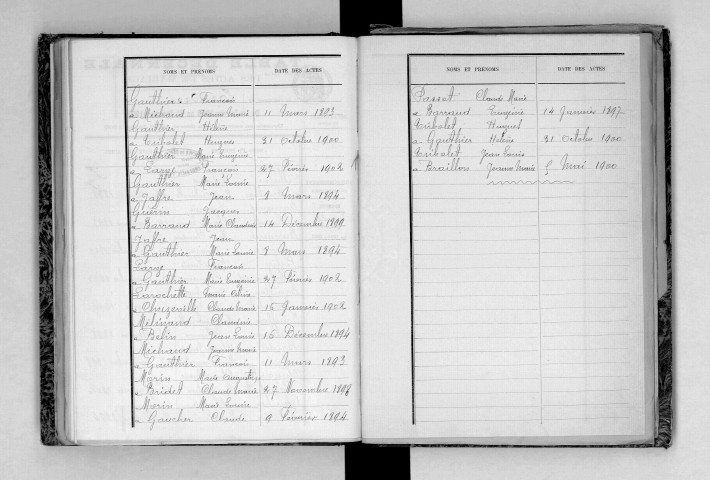 NOMS ET PRÉNOMS DATE DES ACTES
Gauthier François
a Michaud Jeanne Marie 11 Mars 1893
Gauthier Hélène
a Cubolet Hugues 31 Octobre 1900
Gauthier Marie Eugénie
a Large François 27 Février 1902
Gauthier Marie Louise
a Jaffre Jean 8 Mars 1894
Guérin Jacques
a Barraud Marie Claudine 14 Décembre 1899
Jaffre Jean
a Gauthier Marie Louise 8 Mars 1894
Large François
a Gauthier Marie Eugénie 27 Février 1902
Larochette
a Chuzeville Claude Marie 15 Janvier 1902
Mélinand Claudine
a Belin Jean Louis 15 Décembre 1894
Michaud Jeanne Marie
a Gauthier François 11 Mars 1893
Morin Marie
a Bridet Claude Marie 27 Novembre 1898
Morin Marie Louise
a Gaucher Claude 9 Février 1894
NOMS ET PRÉNOMS DATE DES ACTES
Passot Claude Marie
a Barraud Eugénie 14 Janvier 1897
Cubolet Hugues
a Gauthier Hélène 31 Octobre 1900
Cubolet Jean Louis
a Braillon Jeanne Marie 5 Mai 1900